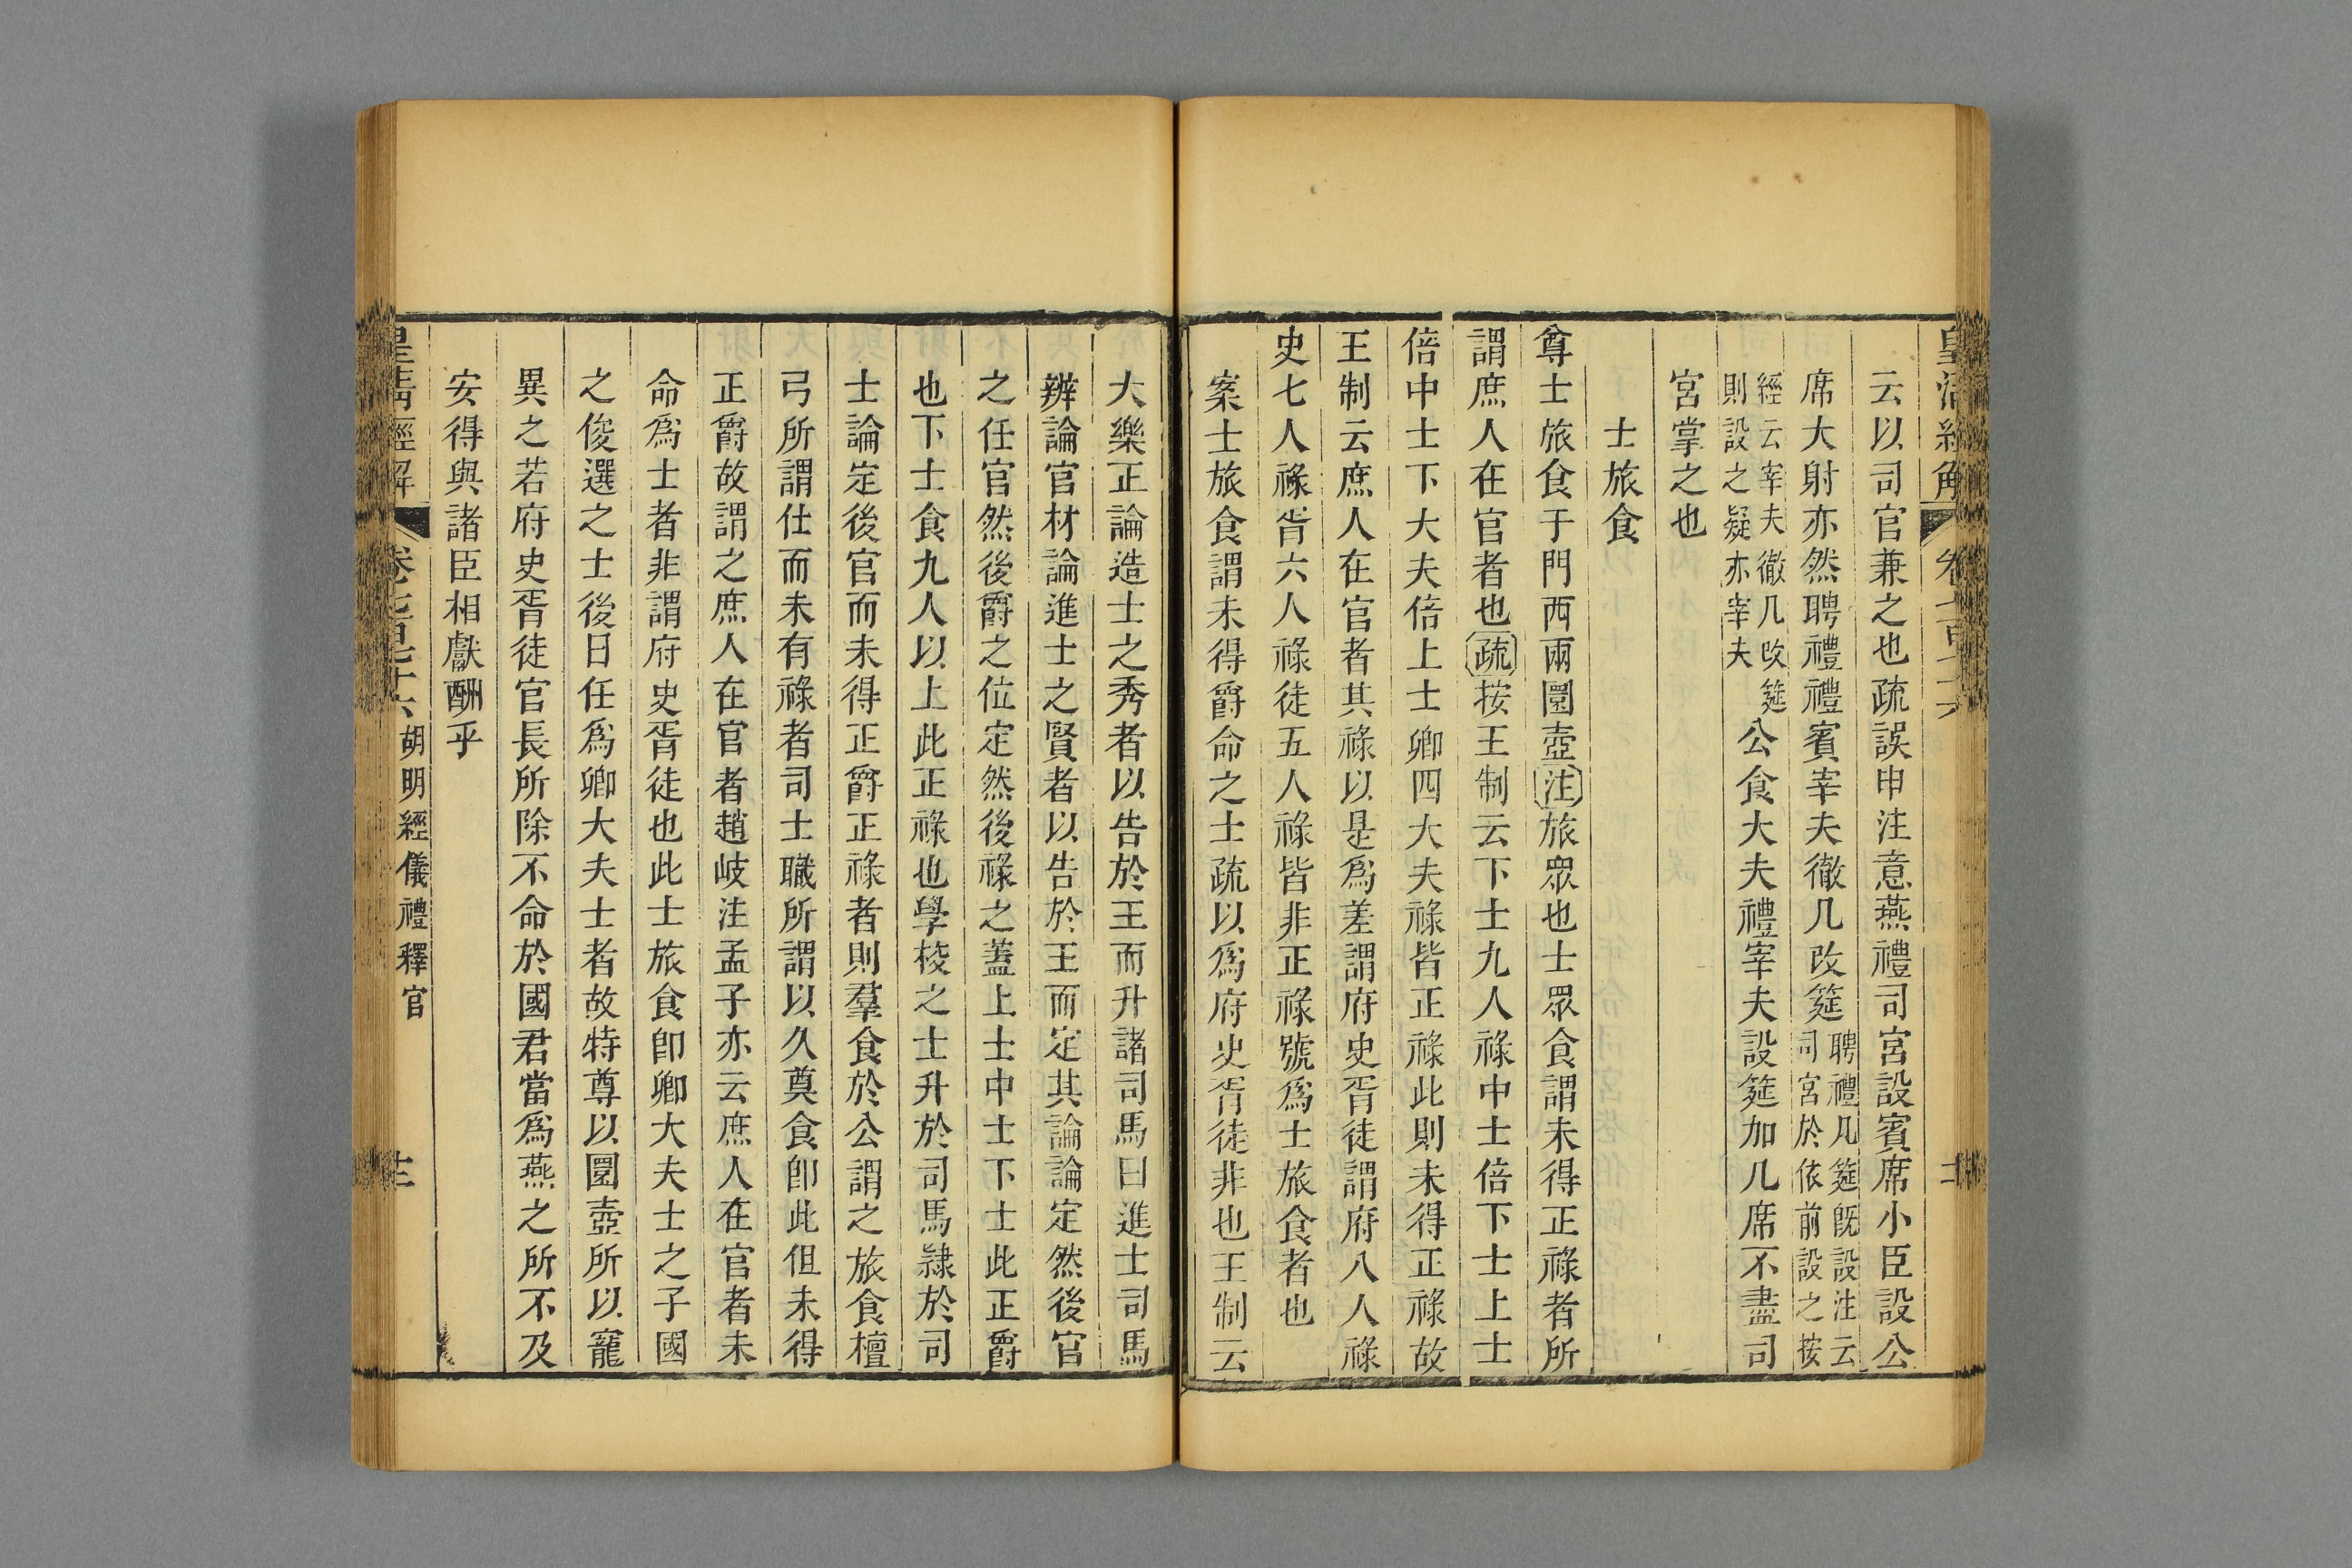 云以司官兼之也疏誤申注意燕禮司宮設賓席小臣設公
席大射亦然聘禮禮賓宰夫徹几改筵聘禮几筵旣設注云司宮於依前設之按
經云宰夫徹几改筵則設之疑亦宰夫公食大夫禮宰夫設筵加几席不盡司
宮掌之也
士旅食
尊士旅食于門西兩圜壺注旅眾也士眾食謂未得正祿者所
謂庶人在官者也疏按王制云下士九人祿中士倍下士上士
倍中士下大夫倍上士卿四大夫祿皆正祿此則未得正祿故
王制云庶人在官者其祿以是爲差謂府史胥徒謂府八人祿
史七人祿胥六人祿徒五人祿皆非正祿號爲士旅食者也
案士旅食謂未得爵命之士疏以爲府史胥徒非也王制云
大樂正論造士之秀者以告於王而升諸司馬曰進士司馬
辨論官材論進士之賢者以告於王而定其論論定然後官
之任官然後爵之位定然後祿之蓋上士中士下士此正爵
也下士食九人以上此正祿也學校之士升於司馬隷於司
士論定後官而未得正爵正祿者則羣食於公謂之旅食檀
弓所謂仕而未有祿者司士職所謂以久奠食卽此但未得
正爵故謂之庶人在官者趙岐注孟子亦云庶人在官者未
命爲士者非謂府史胥徒也此士旅食卽卿大夫士之子國
之俊選之士後日任爲卿大夫士者故特尊以圜壺所以寵
異之若府史胥徒官長所除不命於國君當爲燕之所不及
安得與諸臣相獻酬乎
皇清經解 卷七百七十六 胡明經儀禮釋官